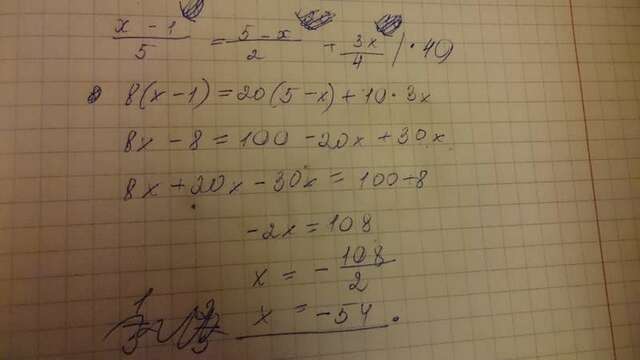 x - 1 / 5 = 5 - x / 2 + 3x / 4 / · 40
8(x - 1) = 20(5 - x) + 10 · 3x
8x - 8 = 100 - 20x + 30x
8x + 20x - 30x = 100 + 8
-2x = 108
x = - 108 / 2
x = -54.